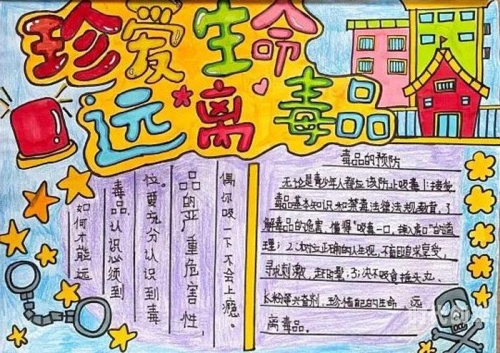 珍爱生命
远离毒品
如何才能远
毒品,认识必须到
位要充分认识到毒
品的严重危害性,
偶尔吸一下不会上瘾。
毒品的预防
无论是青少年人都应该防止吸毒1:接受
毒品基本知识和禁毒法律法规教育,了
解毒品的危害,懂得"吸毒一口,掉入虎口"的道
理;2:树立正确的人生观,不盲目追求享受,
寻求刺激,赶时髦;3:决不吸食摇头丸、
K粉等兴奋剂,珍惜自己的生命,远
离毒品。